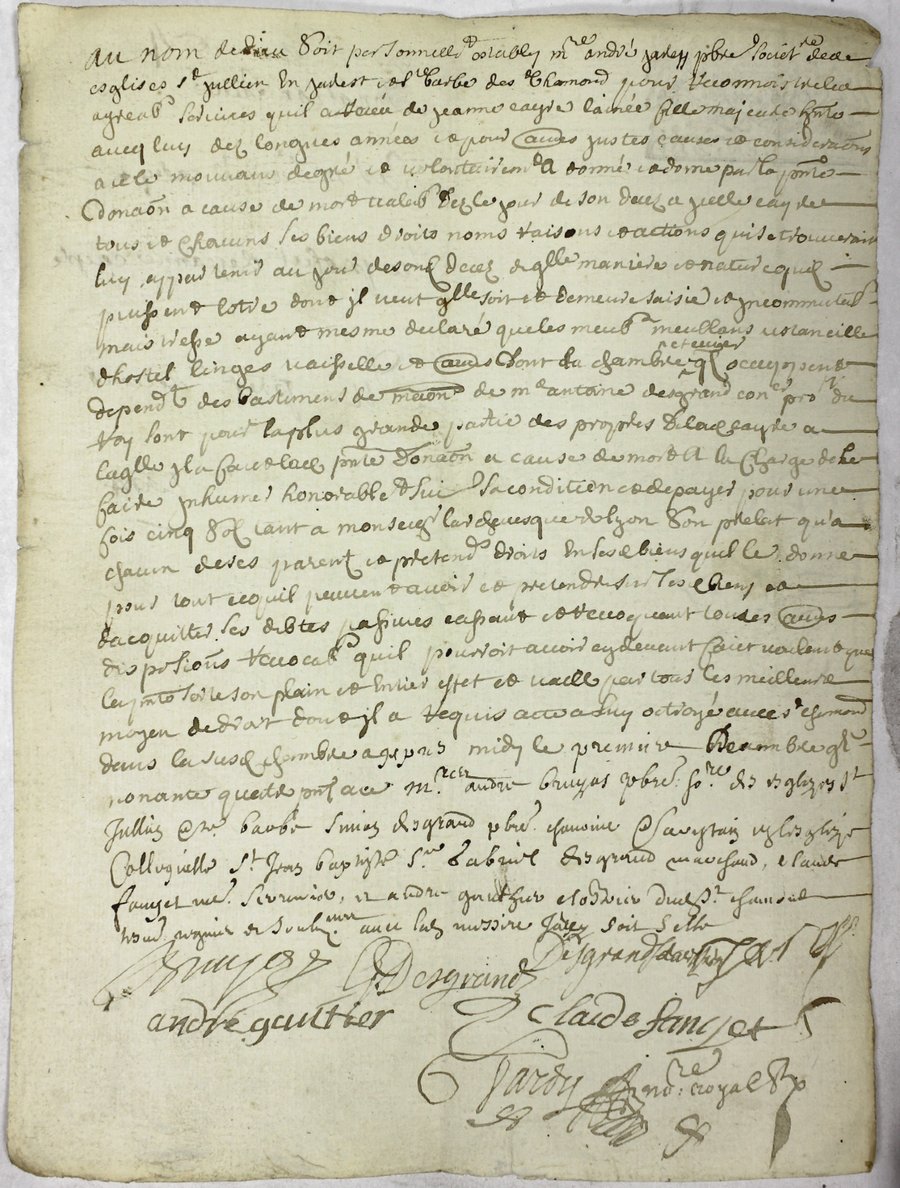 au nom de dieu Soit personnellemt estably mre andré Jarey pbre Societre de de
esglises St Jullien En Jarest et Ste barbe des St Chamond pour reconnoistre les
agreabs Services quil a receu de Jeanne cayre lainée fille majeure hnte
aveq luy dez longues années et pour aues justes causes et considerations
a icele mouvans de gré et volontairemt a donné et donne par la pnte
Donaon a cause de mort valabe dez le jour de son decez a jcelle cayre
tous et chacuns ses biens droits noms raisons et actions qui se trouveront
luy appartenir au jour de sond decez de qlle maniere et nature quil
puissent estre dont jl veut qlle soit et demeure saisie et jncommutabe
maistresse ayant mesme declaré que les meubs meublans ustancille
dhostel linges vaisselle et aues dont la chambre et cuisine ql occuppe
dependt des bastimens de maon de mre antoine desgrand coner procr du
Roy sont pour la plus grande partie des propres de lad cayre a
laqlle jl a fait lad pnte Donaon a cause de mort a la Charge de le
faire jnhumer honorablemt suit sa condition et de payer pour une
fois cinq sols tant à monseigr larchevesque de lyon Son prelat qu'a
chacun de ses parens et pretends droits En ses biens quil le donne
pour tout ce quil peuvent avoir et pretendre sur les biens et
dacquitter ses debtes passives cassant et revocquant toutes aues
dispositions revocabs quil pourroit avoir cy devant fait voulant que
la pnte sorte son plain et Entier effet et vaille par tous les meilleurs
moyen de droit dont jl a requis acte a luy octroyé aud St chamond
dans la susd chambre apres midy le premier Decembre gbi
nonante quatre pnt a ce mre andré bruyas pbre sore des esglizes St
Jullin & Ste barbe Simon desgrand pbre chanoine & sacrestain en lesglize
Collegialle St Jean baptiste Sr Gabriel desgrand marchand, claude
fauyet me serrurier, et andré gauthier cloustrier dud St chamond
avec led messire Jarey soit Selle
Bruyas Desgrand Desgrand Jarey
andré gautier Claude fauyet
Tardy nore royal